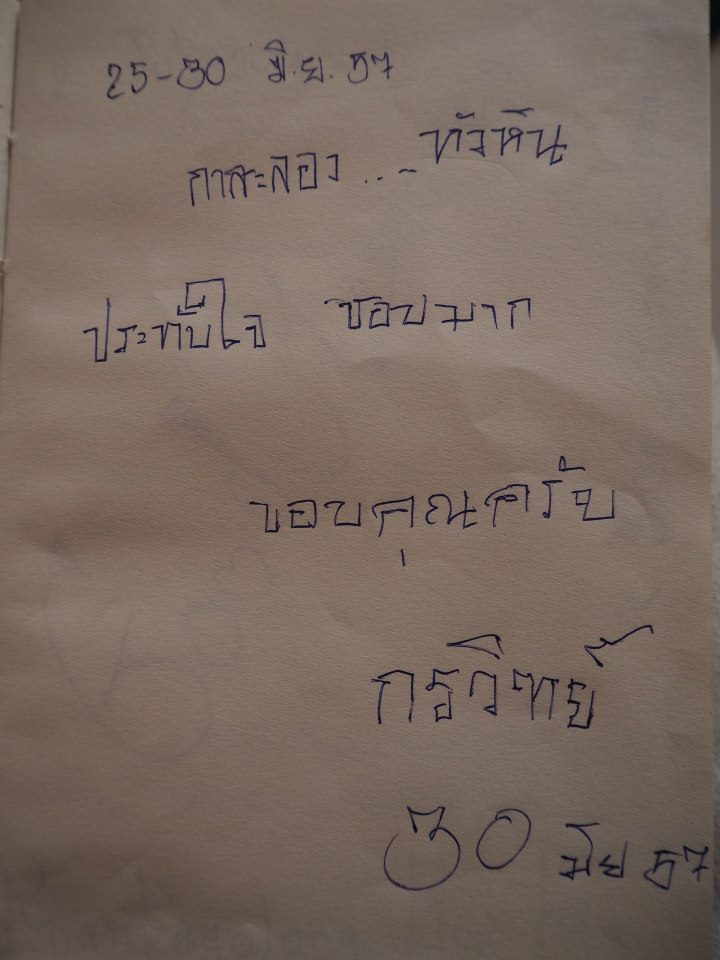 25-30 มิ.ย. 57
กาสะลอง ... หัวหิน
ประทับใจ ชอบมาก
ขอบคุณครับ
กรวิทย์
30 มิย 57